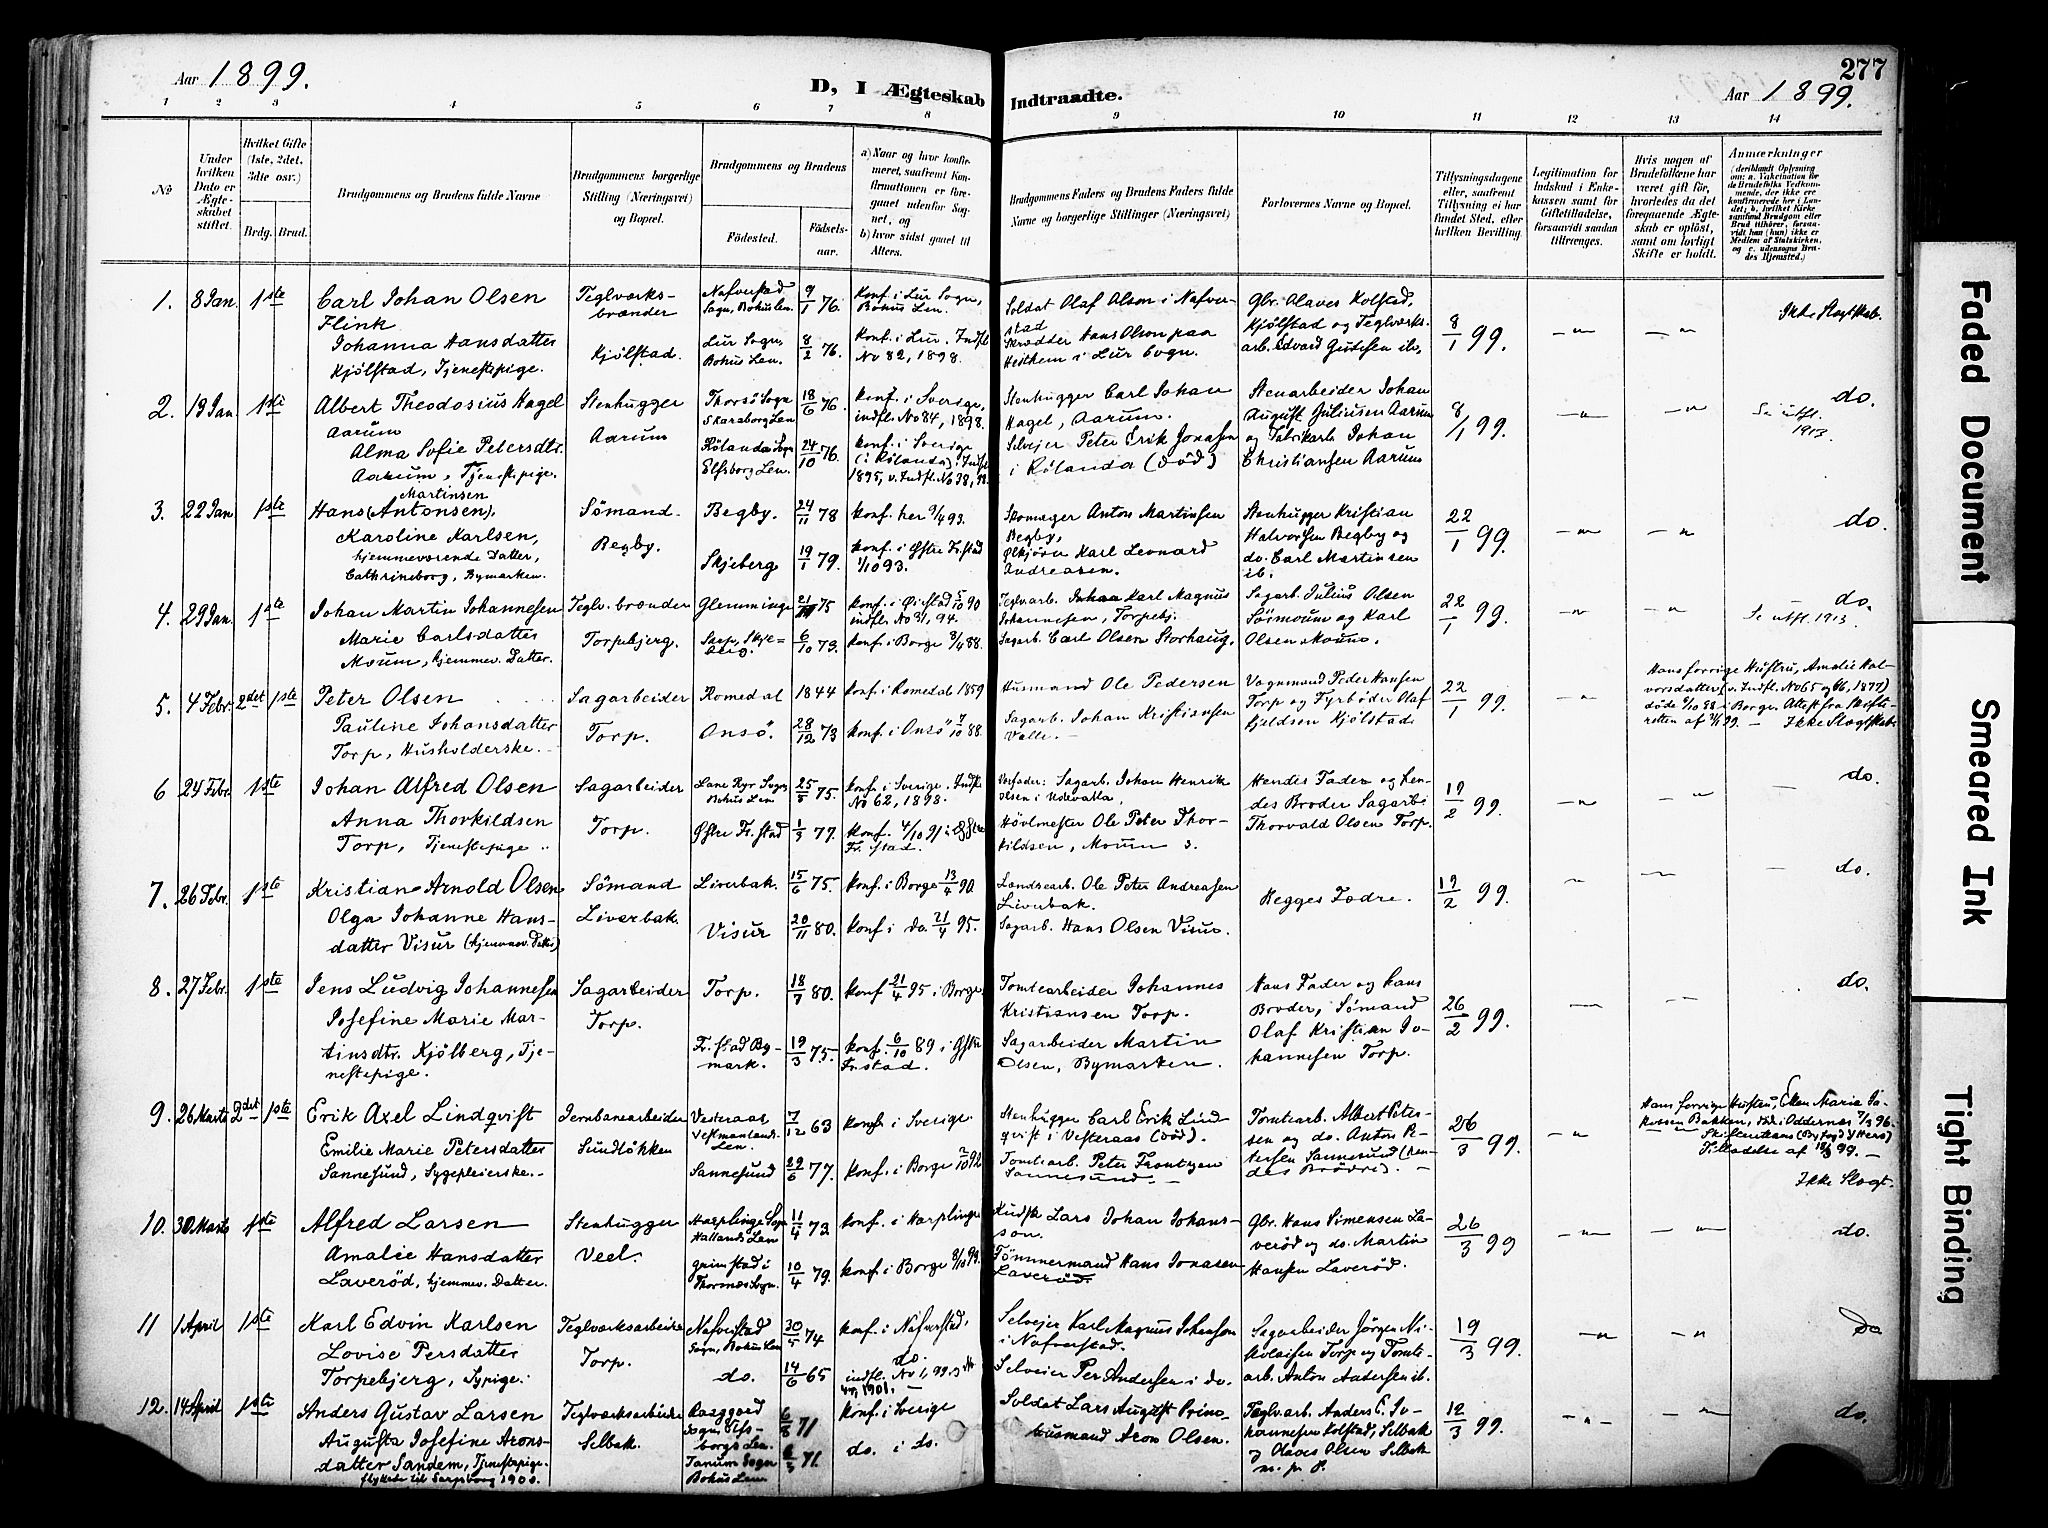 Aar 1899.
D, I Ægteskab Indtraadte.
277
Aar 1899.
1 2 3 4 5 6 7 8 9 10 11 12 13 14
No
Under hvilken Dato er Ægteskabet stiftet.
Hvilket Gifte (1ste, 2det, 3die osv.)
Brdg. Brud.
Brudgommens og Brudens fulde Navne
Brudgommens borgerlige Stilling (Næringsvei) og Bopæl.
Brudgommens og Brudens
Fødested.
Fødselsaar.
a) Naar og hvor konfirmeret, saafremt Konfirmationen er foregaaet udenfor Sognet, og
b) hvor sidst gaaet til Alters.
Brudgommens Faders og Brudens Faders fulde Navne og borgerlige Stillinger (Næringsvei)
Forlovernes Navne og Bopæl.
Tillysningsdagene eller, saafremt Tillysning ei har fundet Sted, efter hvilken Bevilling.
Legitimation for Indskud i Enkekassen samt for Giftetilladelse, forsaavidt saadan tiltrænges.
Hvis nogen af Brudefolkene har været gift før, hvorledes da det foregaaende Ægteskab er opløst, samt om lovligt Skifte er holdt.
Anmærkninger
(deriblandt Oplysning om: a. Vakcination for de Brudefolks Vedkommende, der ikke ere konfirmerede her i Landet; b. hvilket Kirkesamfund Brudgom eller Brud tilhører, forsaavidt han (hun) ikke er Medlem af Statskirken, og c. udensogns Brudes Hjemsted.)
1. 8 Jan. 1ste
Carl Johan Olsen
Flink
Johanna Hansdatter
Kjølstad, Tjenestepige.
Teglværks-
brænder
Kjølstad.
Nafverstad
Sogn, Bohuslen.
Lur Sogn,
Bohus Len.
9/1 76.
8/2 76.
Konf. i Lur Sogn,
Bohus Len.
Konf. i Lur. Indfl.
No 82, 1898.
Soldat Olaf Olson i Nafver-
stad
Skrædder Hans Olson paa
Hedthem i Lur Sogn.
Gbr. Olaves Kolstad,
Kjølstad og Teglværks.
arb. Edvard Gutesen ib.,
8/1 99.
Ikke Slægtskab.
2. 19 Jan. 1ste
Albert Theodosius Hagel
Aarum
Alma Sofie Petersdtr.
Aarum, Tjenestepige.
Stenhugger
Aarum
Thorsø Sogn
Skaraborg Len
Rølanda Sogn
Elfsborg Len.
18/6 76.
24/10 76
konf. i Sverige,
indfl. No 84, 1898.
konf. i Sverige
(i Rølanda), Indfl.
1895, v. Indfl. No 38, 98.
Stenhugger Carl Johan
Hagel, Aarum.
Selveier Peter Erik Jonassen
i Rølanda (død)
Stenarbeider Johan
August Juliusen Aarum
og Fabrikarb. Johan
Christiansen Aarum
8/1 99.
do.
Se utfl.
1913.
3. 22 Jan. 1ste
Martinsen
Hans (Antonsen).
Karoline Karlsen,
hjemmeværende Datter,
Cathrineborg, Bymarken.
Sømand.
Begby.
Begby.
Skjeberg
24/11 78
19/1 79.
konf. her 9/4 93.
konf. i Østre Fr.stad
1/10 93.
Skomager Anton Martinsen
Begby,
Ølkjører Karl Leonard
Andreasen.
Stenhugger Kristian
Halvorsen Begby og
do. Carl Martinsen
ib.
22/1 99.
do.
4. 29 Jan. 1ste
Johan Martin Johannesen
Marie Carlsdatter
Moum, hjemmev. Datter.
Teglv. brænder
Torpebjerg.
Glemminge
Sarp, Skje-
berg.
75
6/10 73.
indfl. No 31, 94.
konf. i Borge 3/4 88.
Teglv.arb. Karl Magnus
Johannesen, Torpebj.
Sagarb. Carl Olsen Storhaug.
Sagarb. Julius Olsen
Sørmoum og Karl
Olsen Moum.
22/1 99.
do.
Se utfl. 1913.
5. 4 Febr. 2det 1ste
Peter Olsen
Pauline Johansdatter
Torp, Husholderske.
Sagarbeider
Torp.
Romedal
Onsø.
1844
28/12 73
konf. i Romedal 1859
konf. i Onsø 7/10 88.
Husmand Ole Pedersen
Sagarb. Johan Kristiansen
Valle.
Vognmand Peder Hansen
Torp og Fyrbøder Olaf
Kjeldsen Kjølstad
22/1 99.
Hans forrige Hustru, Amalie Hal-
vorsdatter (v. Indfl. No 65 og 66, 1877)
døde 9/10 98 i Borge. Attest fra Skifte-
retten af 99. — Ikke Slægtskab
6 24 Febr 1ste
Johan Alfred Olsen
Anna Thorkildsen
Torp, Tjenestepige
Sagarbeider
Torp.
Lane Ryr Sogn
Bohus Len
Østre Fr.stad
25/8 75.
1/3 77.
konf. i Sverige. Indfl.
No 62, 1898.
konf. 4/10 91 i Østre
Fr.stad.
Sagarb. Johan Henrik
Olsen i Udevalla.
Høvlmester Ole Peter Thor-
kildsen, Moum
Hendes Fader og hen-
des Broder Sagarb.
Thorvald Olsen Torp.
19/2 99.
do.
7. 26 Febr. 1ste
Kristian Arnold Olsen
Olga Johanne Hans-
datter Visur (hjemmev. Datter)
Sømand
Liverbak.
Liverbak.
Visur
15/6 75.
20/11 80.
konf. i Borge 13/4 90.
konf. i do. 21/4 95.
Landsearb. Ole Peter Andreasen
Liverbak.
Sagarb. Hans Olsen Visur.
Begges Fædre.
19/2 99.
do.
8. 27 Febr. 1ste
Jens Ludvig Johannesen
Josefine Marie Mar-
tinsdtr. Kjølberg, Tje-
nestepige.
Sagarbeider
Torp.
Torp.
Fr.stad By-
mark.
18/7 80.
19/3 75.
konf 21/4 95 i Borge
konf. 6/10 89 i Østre
Fr.stad.
Tomtearbeider Johannes
Kristiansen Torp.
Sagarbeider Martin
Olsen, Bymarken.
Hans Fader og hans
Broder, Sømand
Olaf Kristian Jo-
hannesen Torp.
26/2 99.
do.
9. 26 Marts 2det 1ste
Erik Axel Lindqvist
Emilie Marie Petersdatter
Sannesund, Sygepleierske.
Jernbanearbeider
Sundløkken
Vesteraas
Vestmanlands
Len.
Sannesund
7/12 63
29/6 77.
konf. i Sverige
konf. i Borge 2/10 92
Stenhugger Carl Erik Lind
qvist i Vesteraas (død).
Tomtearb. Peter Frantzen
Sannesund.
Tomtearb. Albert Peter-
sen og do. Anton Pe-
tersen Sannesund (hen-
des Brødre).
26/3 99.
Hans forrige Hustru, Ellen Marie Ja-
kobsen Bakken, død i Oddernes 7/3 96.
Tilladelse af 99. —
Ikke Slægt.
10. 30 Marts 1ste
Alfred Larsen
Amalie Hansdatter
Laverød, hjemmev. Datter.
Stenhugger
Veel.
Harplinge Sogn
Hallands Len
Grimstad i
Thorsnæs Sogn.
11/4 73
10/4 79.
konf. i Harplinge
konf. i Borge 8/10 93.
Kudsk Lars Johan Johans-
son.
Tømmermand Hans Jonasen
Laverød.
Gbr. Hans Simensen La-
verød og do. Martin
Hansen Laverød.
26/3 99
do.
11 1 April 1ste
Karl Edvin Karlsen
Lovise Persdatter
Torpebjerg, Sypige.
Teglværksarbeider
Torp.
Nafverstad
Sogn, Bohus Len
do.
30/5 74
14/6 65
konf. i Nafverstad,
do.
Selveier Karl Magnus Johanson
i Nafverstad.
Selveier Per Andersen i do.
Sagarbeider Jørgen Ni-
kolaisen Torp og Tomte-
arb. Anton Andersen ib.
19/3 99.
do
12. 14 April 1ste
Anders Gustav Larsen
Augusta Josefine Arons-
datter Sandem, Tjenestepige.
flyttede til Sarpsborg 1900.
Teglværksarbeider
Selbak.
Raggard
Sogn, Elfs-
borgs Len.
Tanum Sogn
Bohus Len
6/8 71
6/3 71.
konf. i Sverige
do. i do.
Soldat Lars August Prins
Husmand Aron Olsen.
Teglv.arb. Anders E. Jo-
hannesen Kolstad, Selbak
og Olaves Olsen Selbak
m. p. P.
12/3 99.
do.
Faded Document
Smeared Ink
Tight Binding